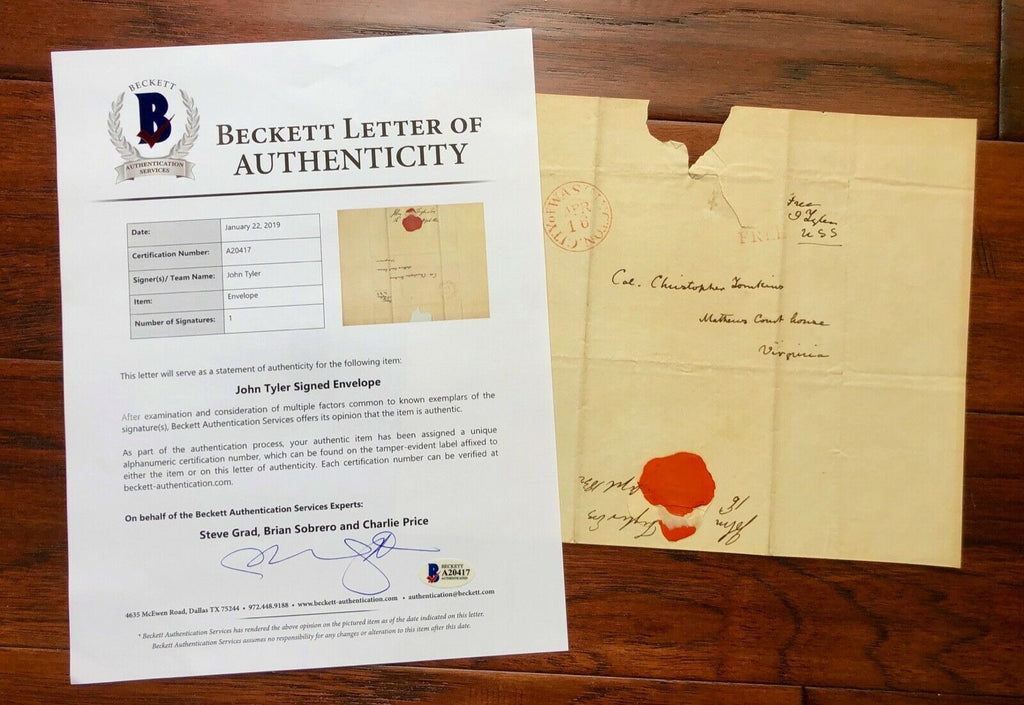 BECKETT
B
AUTHENTICATION
SERVICES
BECKETT LETTER OF
AUTHENTICITY
Date: January 22, 2019
Certification Number: A20417
Signer(s)/ Team Name: John Tyler
Item: Envelope
Number of Signatures: 1
This letter will serve as a statement of authenticity for the following item:
John Tyler Signed Envelope
After examination and consideration of multiple factors common to known exemplars of the
signature(s), Beckett Authentication Services offers its opinion that the item is authentic.
As part of the authentication process, your authentic item has been assigned a unique
alphanumeric certification number, which can be found on the tamper-evident label affixed to
either the item or on this letter of authenticity. Each certification number can be verified at
beckett-authentication.com.
On behalf of the Beckett Authentication Services Experts:
Steve Grad, Brian Sobrero and Charlie Price
B BECKETT
A20417
AUTHENTICATED
4635 McEwen Road, Dallas TX 75244 • 972.448.9188 • www.beckett-authentication.com • authentication@beckett.com
* Beckett Authentication Services has rendered the above opinion on the pictured item as of the date indicated on this letter.
Beckett Authentication Services assumes no responsibility for any changes or alteration to this item after this date.
CITY OF WASHINGTON
APR
16
FREE
Free
J Tyler
USS
Col. Christopher Tomkins
Mathews Court house
Virginia
John
Tyler Esq
16
Apl 1832